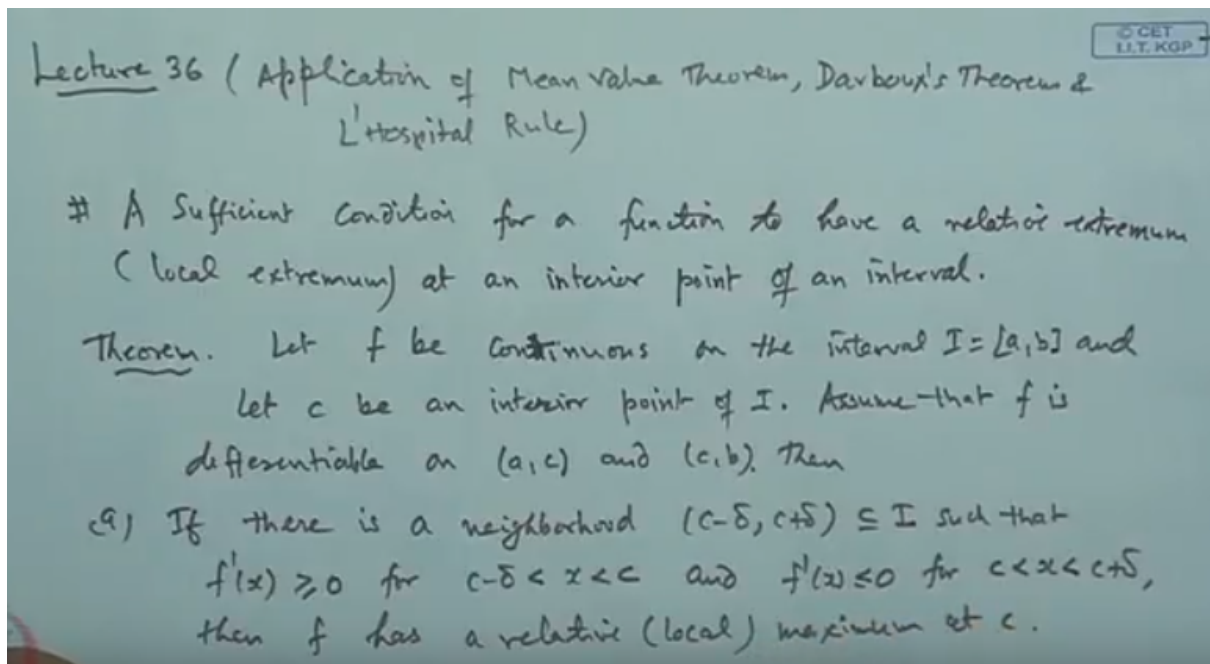 © CET
I.I.T. KGP
Lecture 36 ( Application of Mean Value Theorem, Darboux's Theorem &
L'Hospital Rule)
# A Sufficient Condition for a function to have a relative extremum
( local extremum) at an interior point of an interval.
Theorem. Let f be continuous on the interval I = [a,b] and
let c be an interior point of I. Assume that f is
differentiable on (a,c) and (c,b). Then
(a) If there is a neighborhood (c-δ, c+δ) ⊆ I such that
f'(x) ≥ 0 for c-δ < x < c and f'(x) ≤ 0 for c < x < c+δ,
then f has a relative (local) maximum at c.